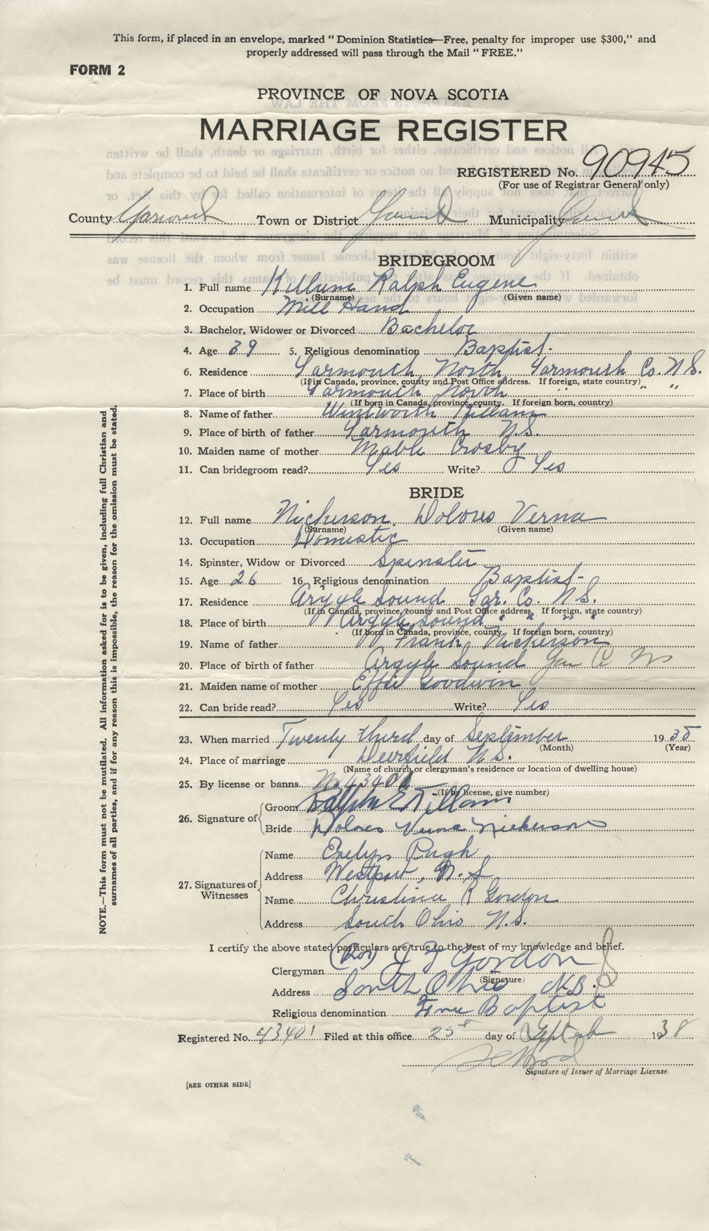 This form, if placed in an envelope, marked "Dominion Statistics—Free, penalty for improper use $300," and
properly addressed will pass through the Mail "FREE."
FORM 2
PROVINCE OF NOVA SCOTIA
MARRIAGE REGISTER
REGISTERED No. 90945
(For use of Registrar General only)
County Yarmouth Town or District Yarmouth Municipality Yarmouth
BRIDEGROOM
1. Full name Killam Ralph Eugene
(Surname) (Given name)
2. Occupation Mill Hand
3. Bachelor, Widower or Divorced Bachelor
4. Age 39 5. Religious denomination Baptist.
6. Residence Yarmouth North, Yarmouth Co. N.S.
(If in Canada, province, county and Post Office address. If foreign, state country)
7. Place of birth Yarmouth North " "
(If born in Canada, province, county. If foreign born, country)
8. Name of father Wentworth Killam
9. Place of birth of father Yarmouth N.S.
10. Maiden name of mother Mable Crosby
11. Can bridegroom read? Yes Write? Yes
BRIDE
12. Full name Nickerson, Dolores Verna
(Surname) (Given name)
13. Occupation Domestic
14. Spinster, Widow or Divorced Spinster
15. Age 26 16. Religious denomination Baptist-
17. Residence Argyle Sound Yar. Co. N.S.
(If in Canada, province, county and Post Office address. If foreign, state country)
18. Place of birth Argyle Sound " " " "
(If born in Canada, province, county. If foreign born, country)
19. Name of father Frank Nickerson
20. Place of birth of father Argyle Sound Yar Co NS
21. Maiden name of mother Effie Goodwin
22. Can bride read? Yes Write? Yes
23. When married Twenty third day of September 1938
(Month) (Year)
24. Place of marriage Deerfield N.S.
(Name of church or clergyman's residence or location of dwelling house)
25. By license or banns No 43401
(If by license, give number)
26. Signature of Groom Ralph E Killam
Bride Dolores Verna Nickerson
27. Signatures of Witnesses
Name Evelyn Pugh
Address Westport, N.S
Name Christina R Gordon
Address South Ohio N.S.
I certify the above stated particulars are true to the best of my knowledge and belief.
Clergyman (Rev) J F Gordon
(Signature)
Address South Ohio N.S.
Religious denomination Free Baptist
Registered No. 43401 Filed at this office 25th day of Septmb 1938
Signature of Issuer of Marriage License.
[SEE OTHER SIDE]
NOTE.—This form must not be mutilated. All information asked for is to be given, including full Christian and
surnames of all parties, and if for any reason this is impossible, the reason for the omission must be stated.